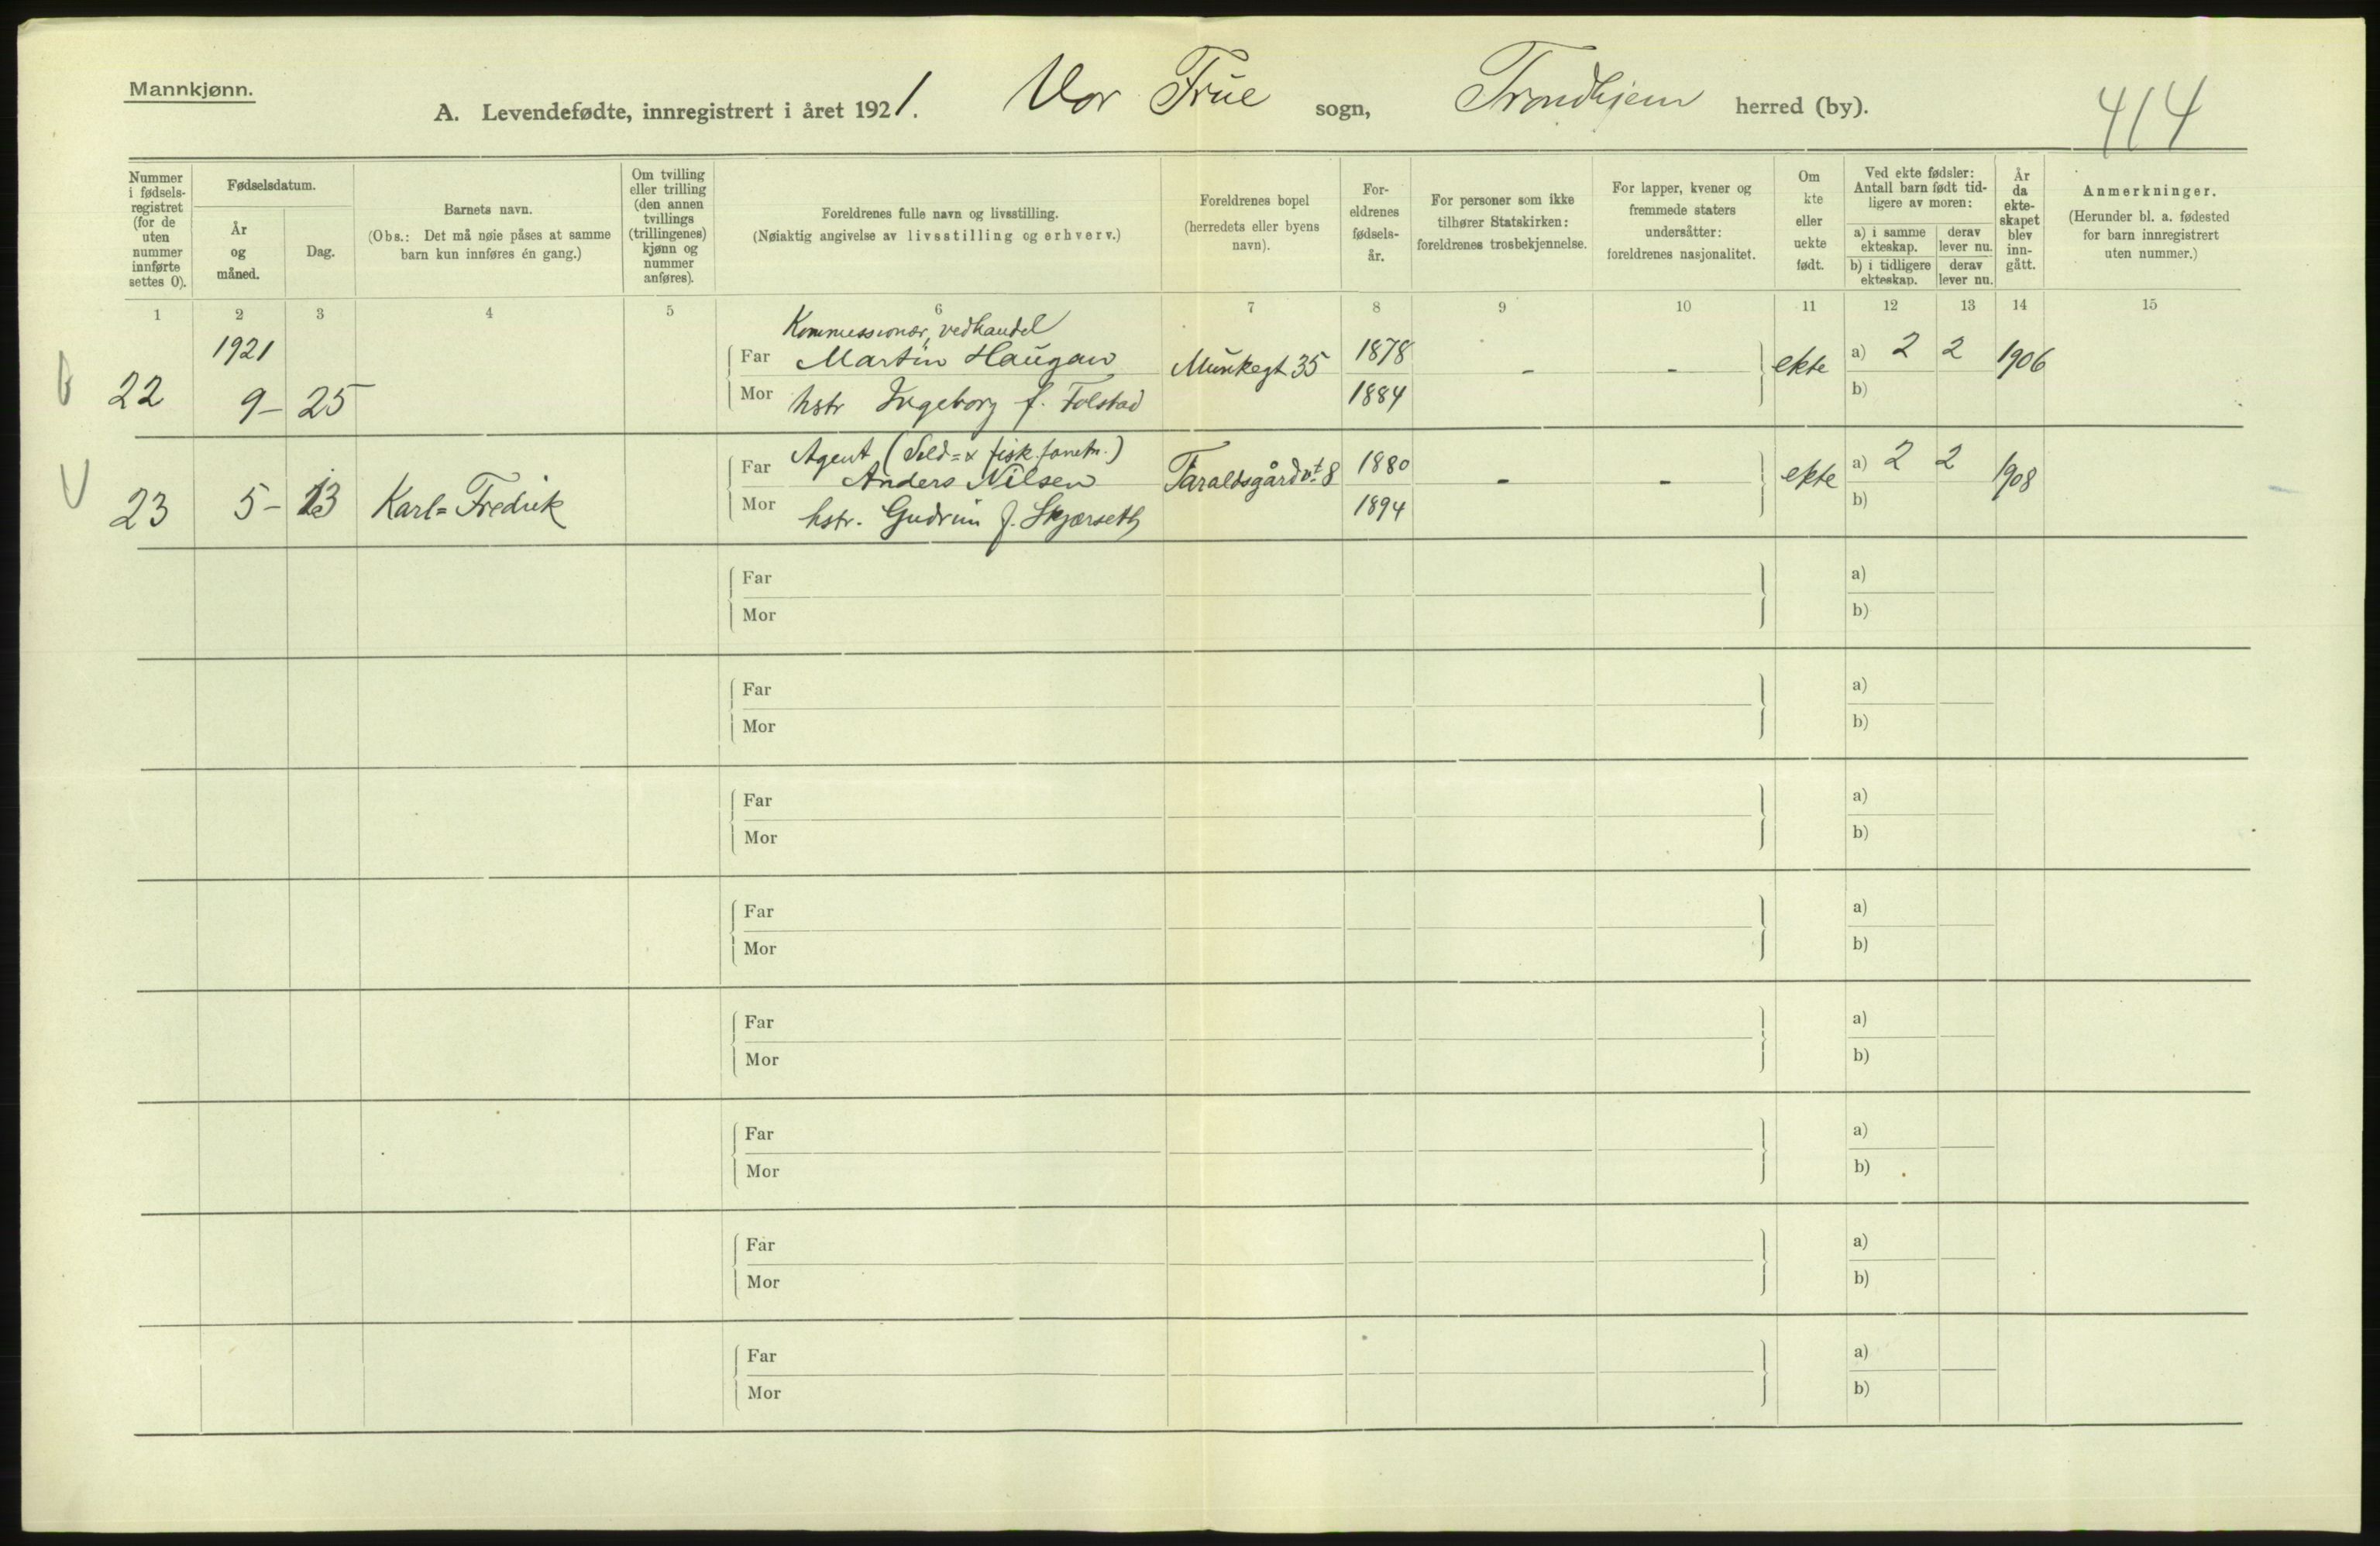 Mannkjønn.
A. Levendefødte, innregistrert i året 1921. Vor Frue sogn, Trondhjem herred (by). 414
Nummer i fødsels-registret (for de uten nummer innførte settes 0).
Fødselsdatum.
År og måned.
Dag.
Barnets navn.
(Obs.: Det må nøie påses at samme barn kun innføres én gang.)
Om tvilling eller trilling (den annen tvillings (trillingenes) kjønn og nummer anføres).
Foreldrenes fulle navn og livsstilling.
(Nøiaktig angivelse av livsstilling og erhverv.)
Foreldrenes bopel
(herredets eller byens navn).
For-eldrenes fødsels-år.
For personer som ikke tilhører Statskirken: foreldrenes trosbekjennelse.
For lapper, kvener og fremmede staters undersåtter: foreldrenes nasjonalitet.
Om kte eller uekte født.
Ved ekte fødsler:
Antall barn født tid-ligere av moren:
a) i samme ekteskap.
derav lever nu.
b) i tidligere ekteskap.
derav lever nu.
År da ekte-skapet blev inn-gått.
Anmerkninger.
(Herunder bl. a. fødested for barn innregistrert uten nummer.)
1 2 3 4 5 6 7 8 9 10 11 12 13 14 15
1921 Kommissionær, vedhandel
Far Martin Haugan Munkegt 35 1878 - - ekte a) 2 2 1906
22 9- 25 Mor hstr Ingeborg f. Tolstad 1884 b)
Agent
Far Anders Nilsen Taraldsgårdvt. 8 1880 - - ekte a) 2 2 1908
23 5- 13 Karl=Fredrik Mor hstr. Gudrun f. Skjærseth 1894 b)
Far a)
Mor b)
Far a)
Mor b)
Far a)
Mor b)
Far a)
Mor b)
Far a)
Mor b)
Far a)
Mor b)
Far a)
Mor b)
Far a)
Mor b)